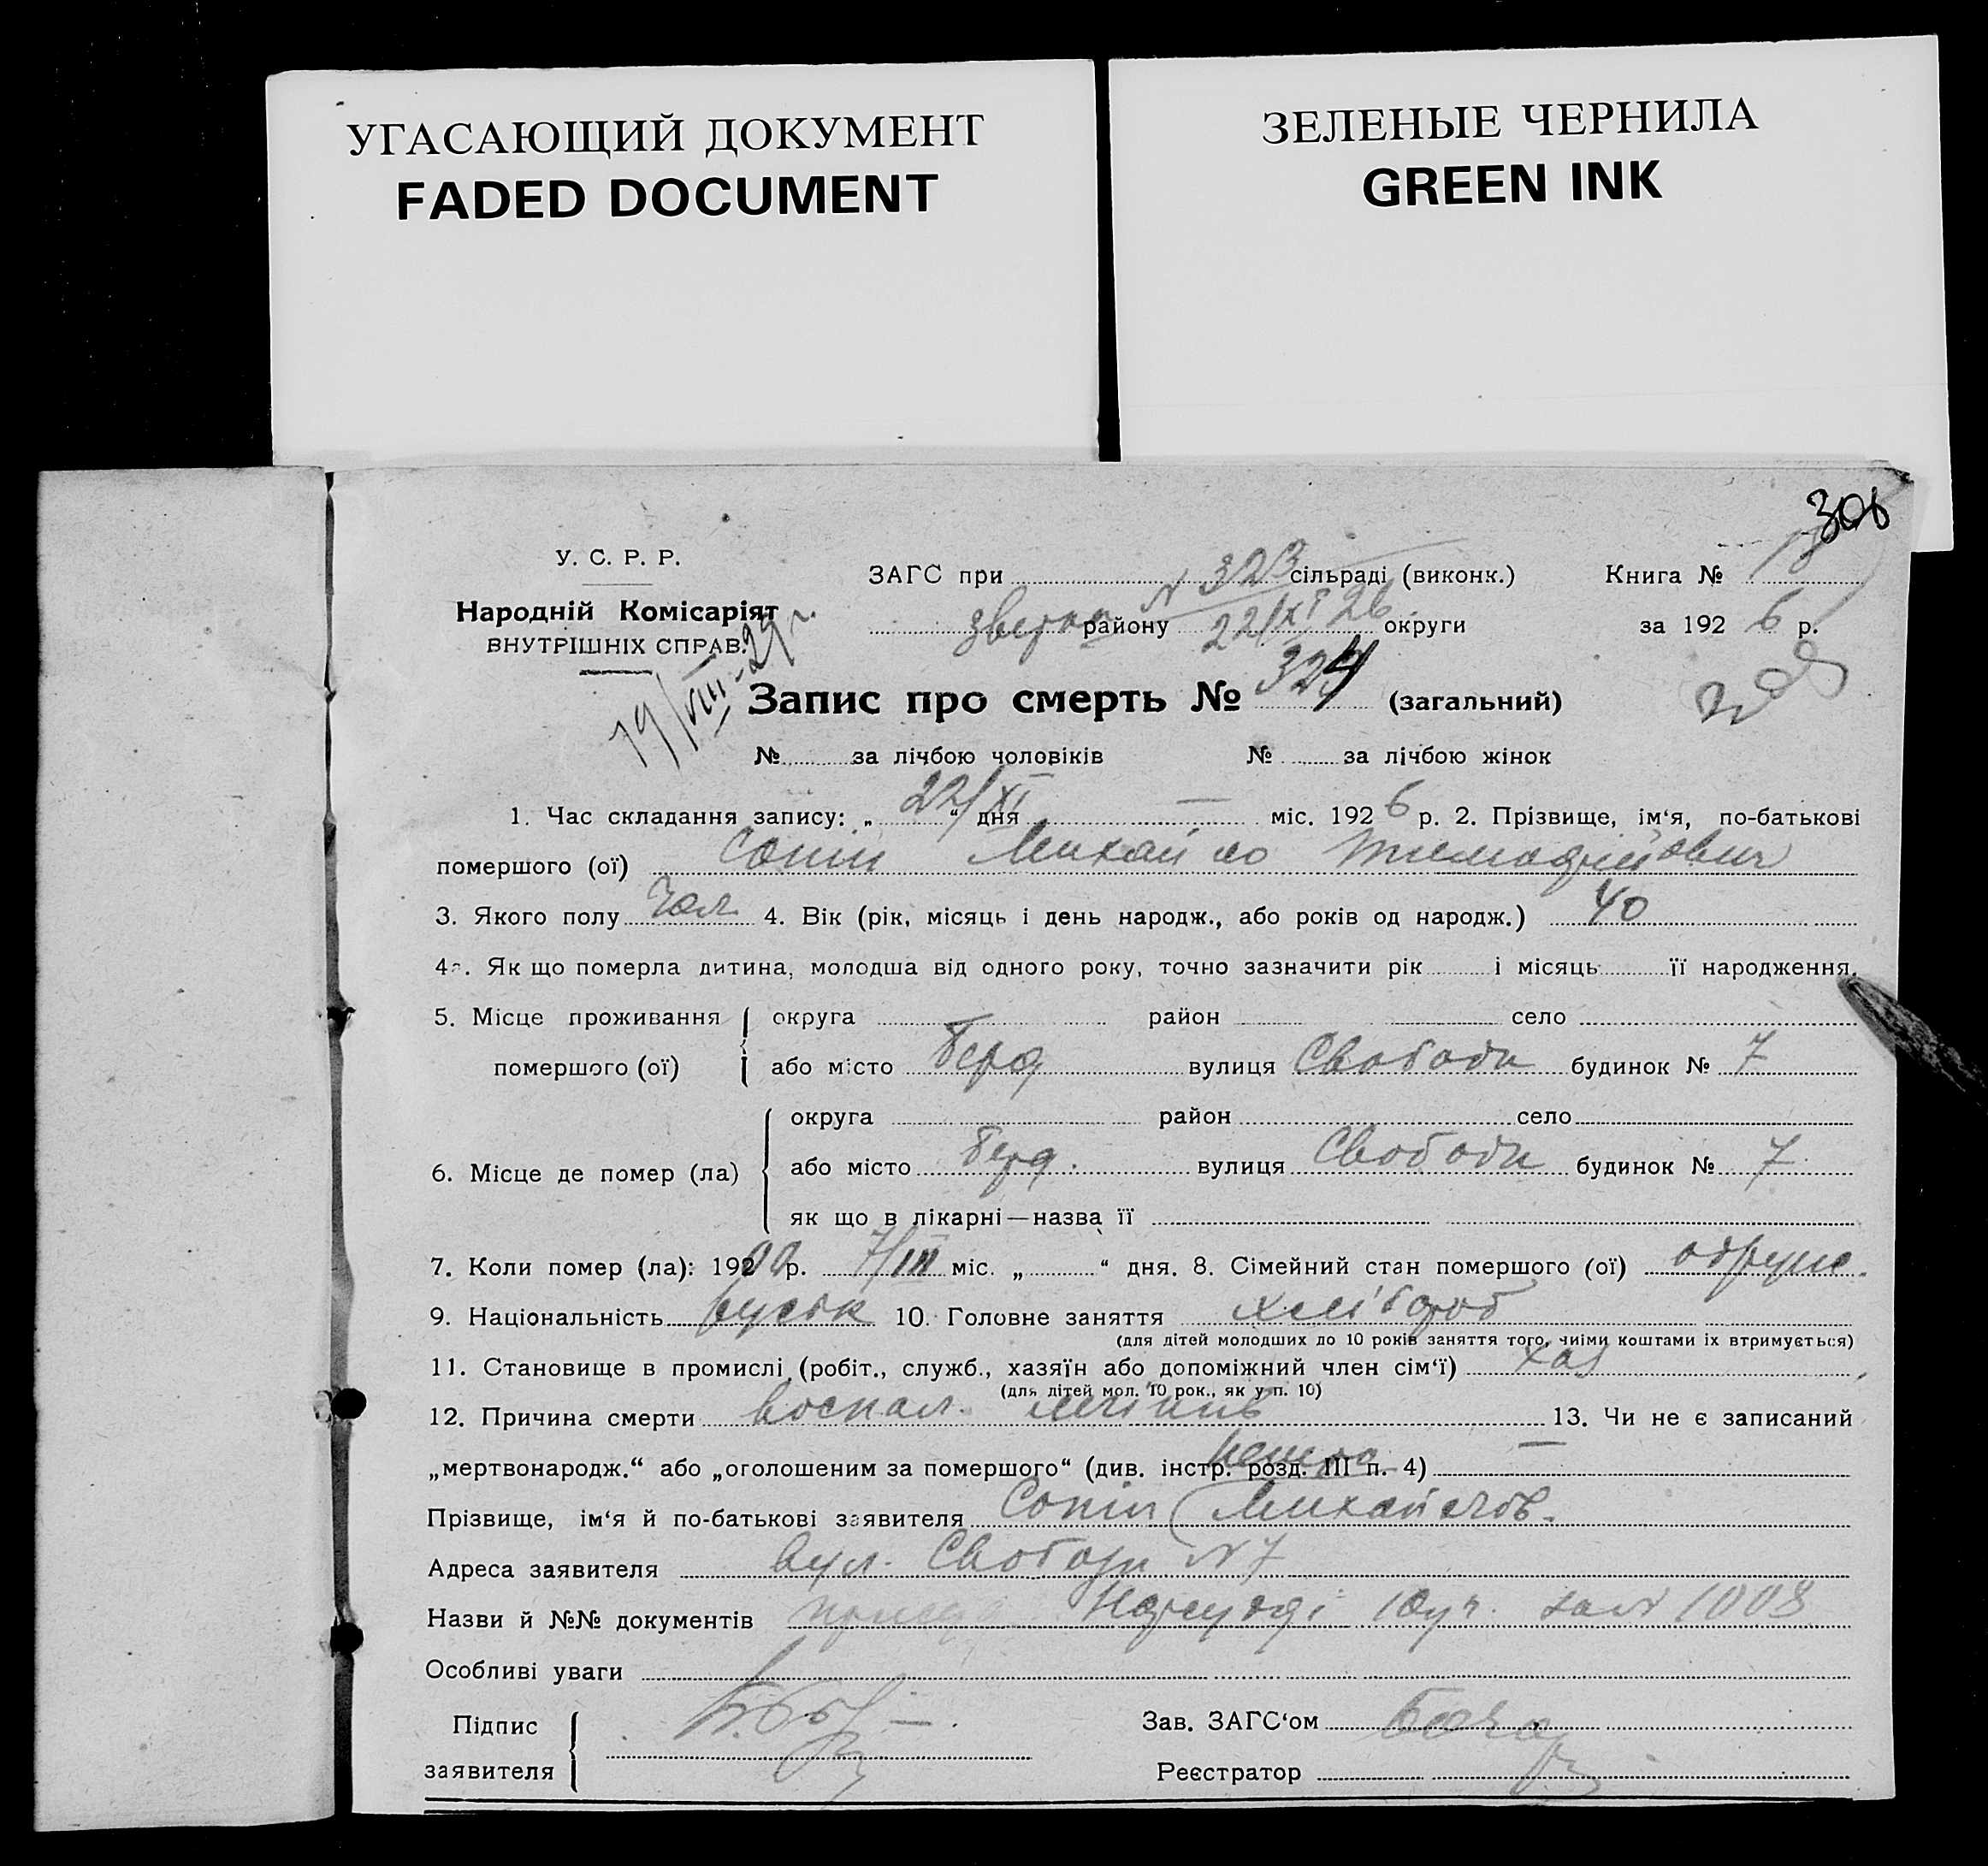 УГАСАЮЩИЙ ДОКУМЕНТ
FADED DOCUMENT
ЗЕЛЕНЫЕ ЧЕРНИЛА
GREEN INK
У. С. Р. Р.
Народній Комісаріят
ВНУТРІШНІХ СПРАВ.
19/VIII-29 г.
ЗАГС при N 323 сільраді (виконк.)
району 22/XI 26 округи
Книга № 18
за 192 6 р.
Запис про смерть № 324 (загальний)
№ за лічбою чоловіків № за лічбою жінок
1. Час складання запису: „ 22/XI “ дня — міс. 192 6 р. 2. Прізвище, ім‘я, по-батькові
помершого (ої) Сопін Михайло
3. Якого полу Чол. 4. Вік (рік, місяць і день народж., або років од народж.) 40
4а. Як що померла дитина, молодша від одного року, точно зазначити рік і місяць її народження.
5. Місце проживання округа район село
помершого (ої) або місто Берд вулиця Свободи будинок № 7
округа район село
6. Місце де помер (ла) або місто Берд. вулиця Свободи будинок № 7
як що в лікарні—назва її
7. Коли помер (ла): 192 р. 7/III міс. „ “ дня. 8. Сімейний стан помершого (ої) одруж.
9. Національність руськ 10. Головне заняття хлібороб
(для дітей молодших до 10 років заняття того, чиїми коштами їх втримується)
11. Становище в промислі (робіт., служб., хазяїн або допоміжний член сім‘ї) хаз
(для дітей мол. 10 рок., як у п. 10)
12. Причина смерти воспал. 13. Чи не є записаний
„мертвонародж.“ або „оголошеним за помершого“ (див. інстр. розд. III п. 4) —
Прізвище, ім‘я й по-батькові заявителя Сопін Михайлов.
Адреса заявителя вул. Свободи N 7
Назви й №№ документів Нарсуду 1 уч. за N 1008
Особливі уваги
Підпис
заявителя
Зав. ЗАГС‘ом
Реєстратор